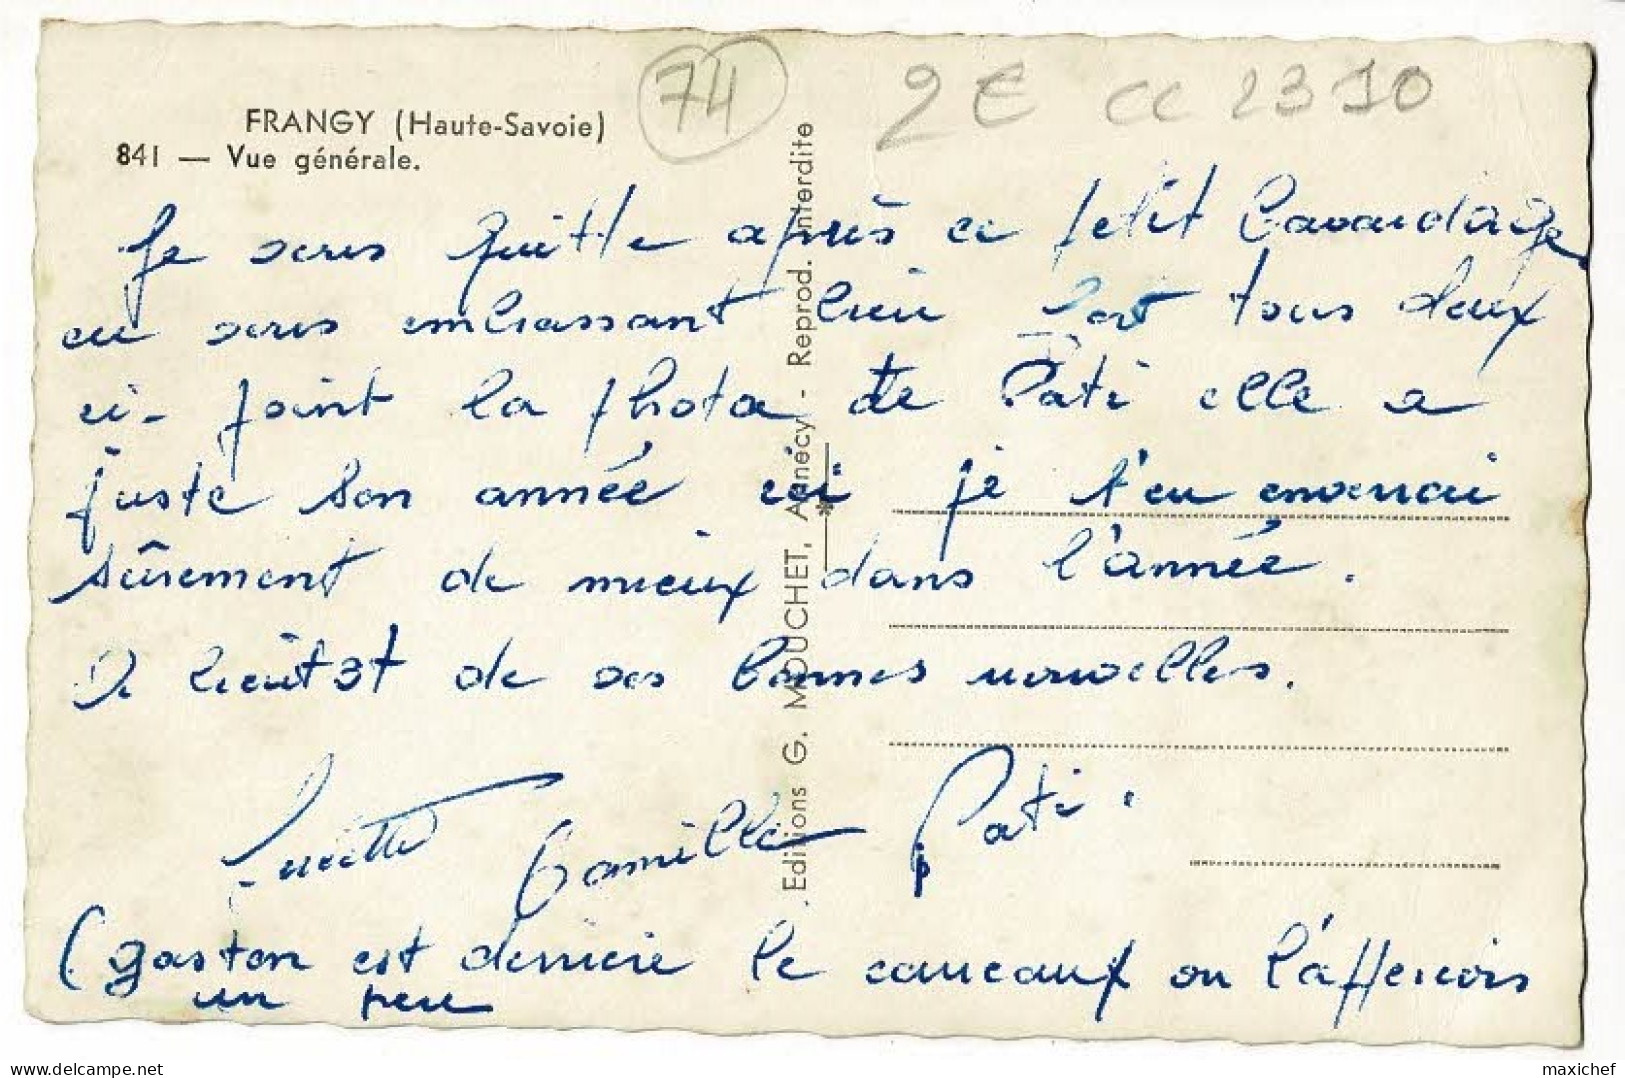 74
2€ cc 2310
FRANGY (Haute-Savoie)
841 — Vue générale.
Je vous quitte après ce petit bavardage
en vous embrassant bien fort tous deux
ci-joint la photo de Pati elle a
juste son année ici je t'en enverrai
sûrement de mieux dans l'année.
A bientôt de vos bonnes nouvelles.
Lucette Camille Pati.
(gaston est derrière le carreaux on l'apperçois
un peu
Editions G. MOUCHET, Annécy - Reprod. interdite
delcampe.net
maxichef